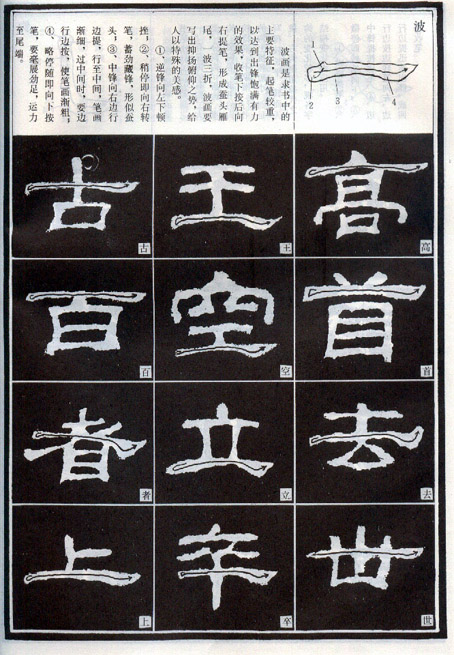 波
1
2
3
4
波画是隶书中的
主要特征，起笔较重，
以达到出锋饱满有力
的效果，收笔下按后向
右提笔，形成蚕头雁
尾，一波三折，波画要
写出抑扬俯仰之势，给
人以特殊的美感。
①逆锋向左下顿
挫；②、稍停即向右转
笔，蓄劲藏锋，形似蚕
头；③、中锋向右边行
边提，行至中间，笔画
渐细，过中间时，要边
行边按，使笔画渐粗；
④、略停随即向下按
笔，要毫展劲足，运力
至尾端。
高
高
首
首
去
去
世
世
王
王
空
空
立
立
卒
卒
古
古
百
百
者
者
上
上